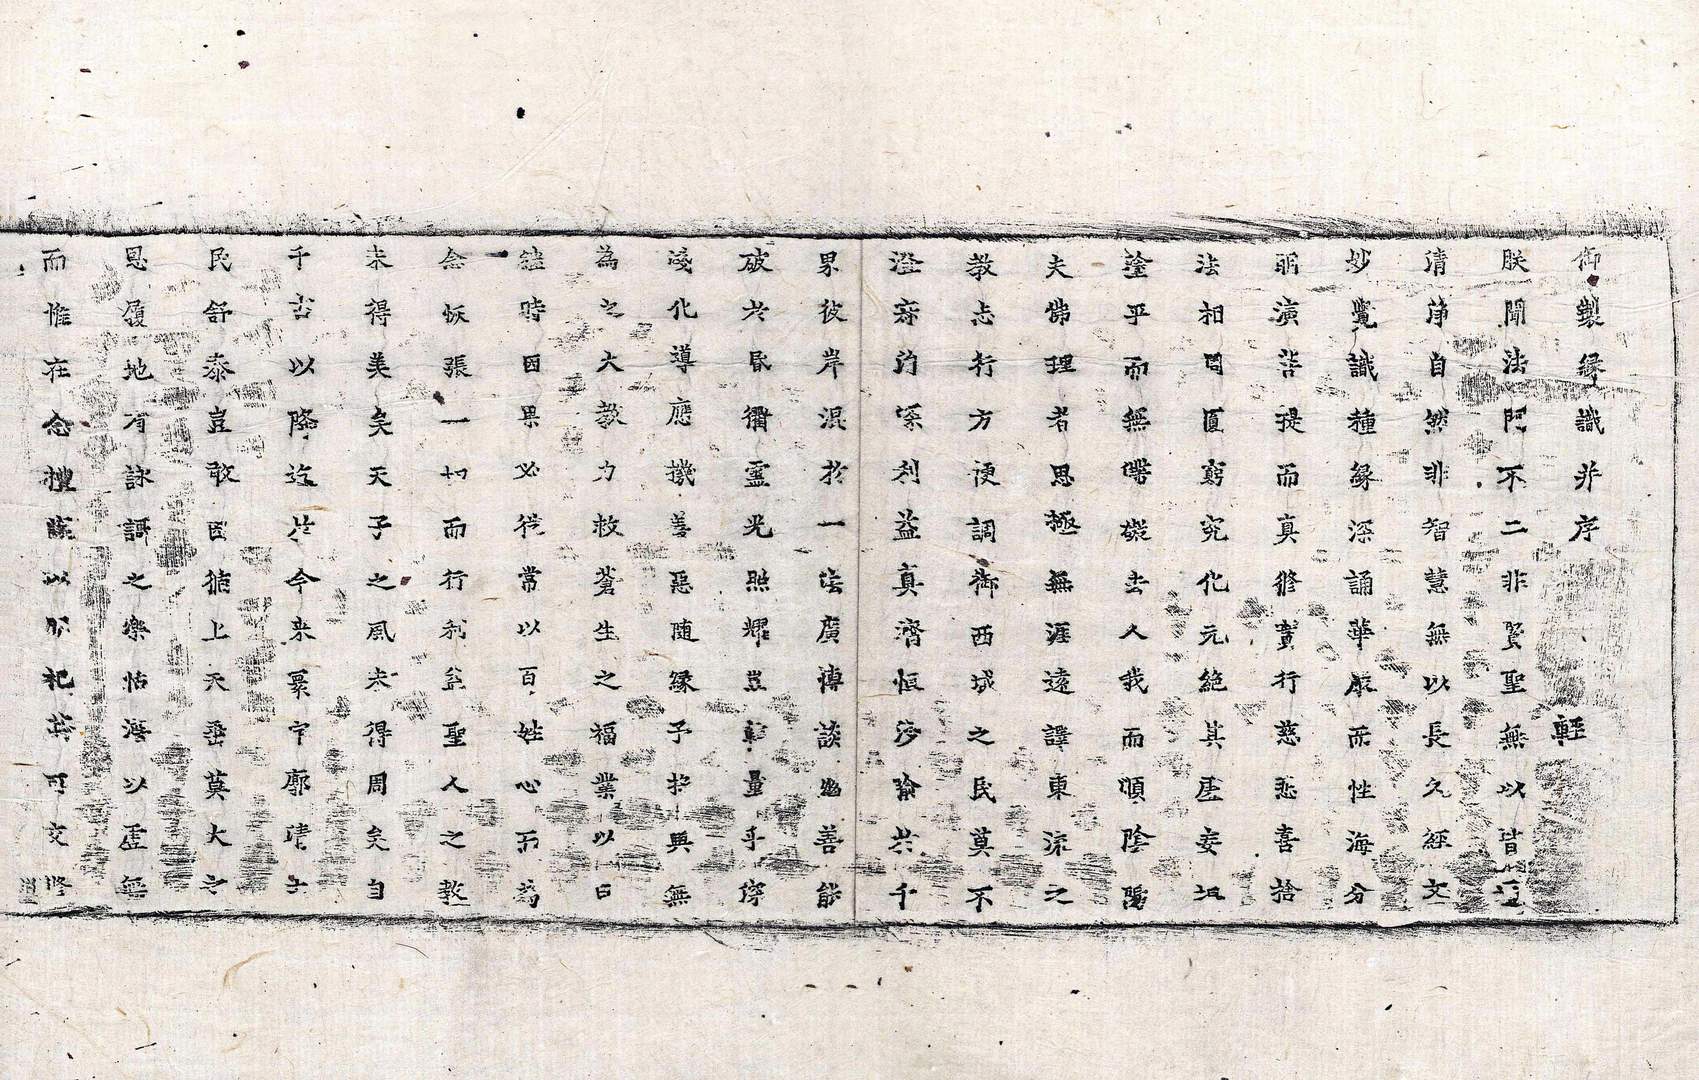 御製緣識并序
輕
朕聞法門不二非賢聖無以皆
清淨自然非智慧無以長久經文
妙覺識種緣深誦華嚴而性海分
明演菩提而真修實行慈悲喜捨
法相周圓窮究化元絶其虛妄
塗乎而無帶礙去人我而順陰陽
夫佛理者思極無涯遠譯東流之
教志行方便調御西域之民莫不
澄寂門深利益真濟恒沙喻於千
界彼岸混於一法廣博談幽善能
破於昏衢靈光照耀豈輕量乎
淺化導應機善惡隨緣予於興無
為之大教力救蒼生之福業以日
時因果必從常以百姓心而為
念恢張一切而行利益聖人之教
未得美矣天子之風未得周矣自
千古以降迄於今來寰宇廓清
民舒泰豈敢因循上天垂莫大之
恩履地有詠謌之樂恬澹以虛無
而惟在念禋以祀